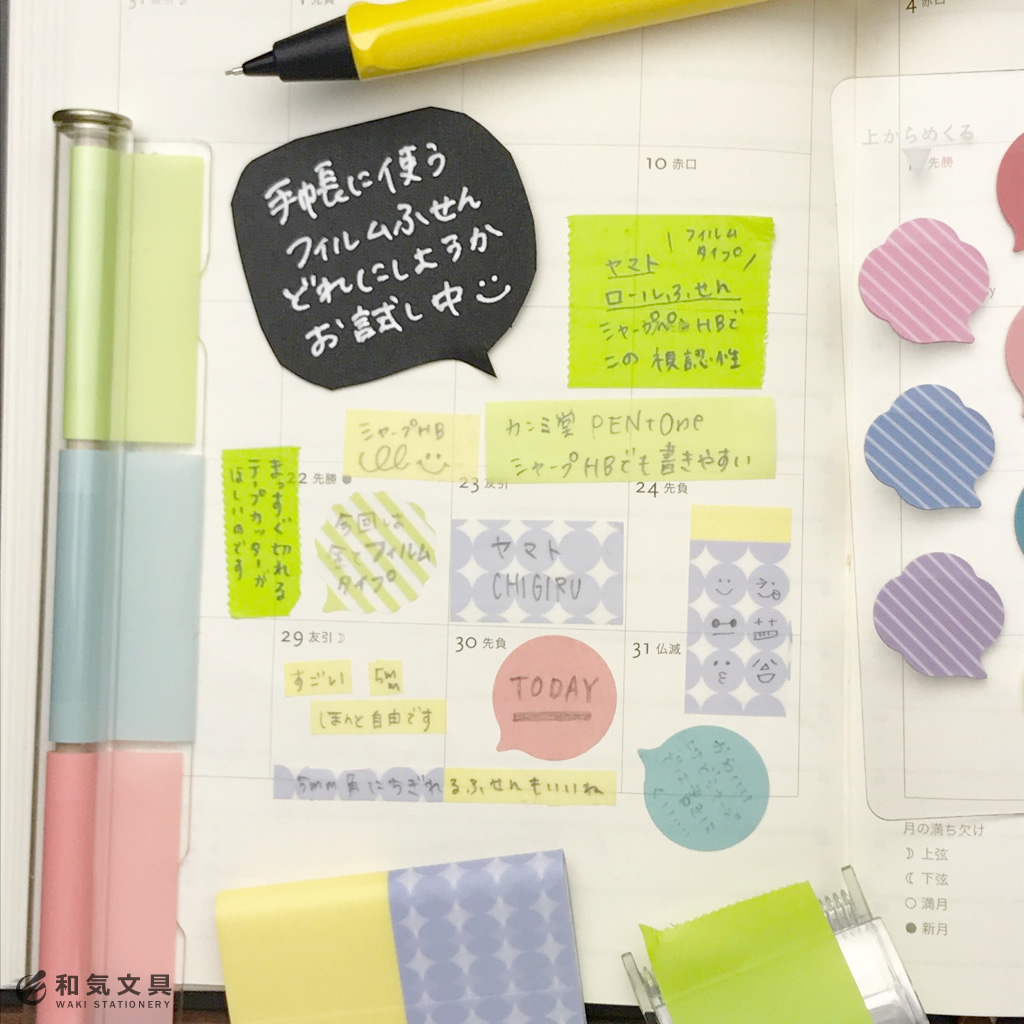 31 友引
4 赤口
手帳に使う
フィルムふせん
どれにしようか
お試し中
10 赤口
上からめくる
先勝
フィルム
タイプ
ヤマト
ロールふせん
シャーペン HBで
この 視認性
シャープHB
カンミ堂 PENtOne
シャープHBでも書きやすい
まっすぐ切れる
テープカッターが
ほしいのです
22 先勝
23 友引
24 先負
今回は
全てフィルム
タイプ
ヤマト
CHIGIRU
29 友引
30 先負
31 仏滅
すごい
5mm
ほんと自由です
TODAY
5mm角にちぎれるふせんもいいね
月の満ち欠け
上弦
下弦
満月
新月
和気文具
WAKI STATIONERY